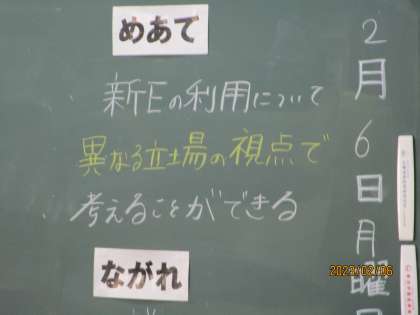 2月6日月曜日
めあて
新Eの利用について
異なる立場の視点で
考えることができる
ながれ
2023/02/06